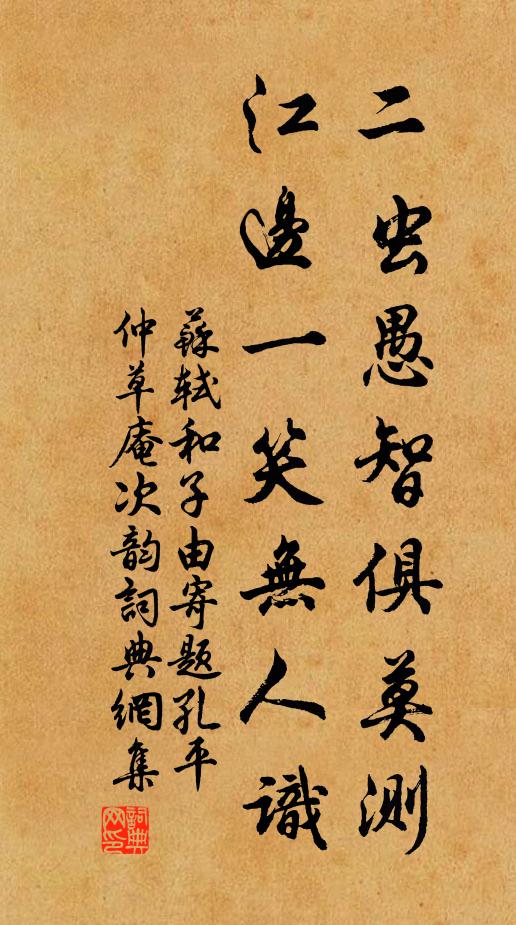 二虫愚智俱莫測
江邊一笑無人識
蘇軾和子由寄题孔平
仲草庵次韵詞典網集
詞典网印